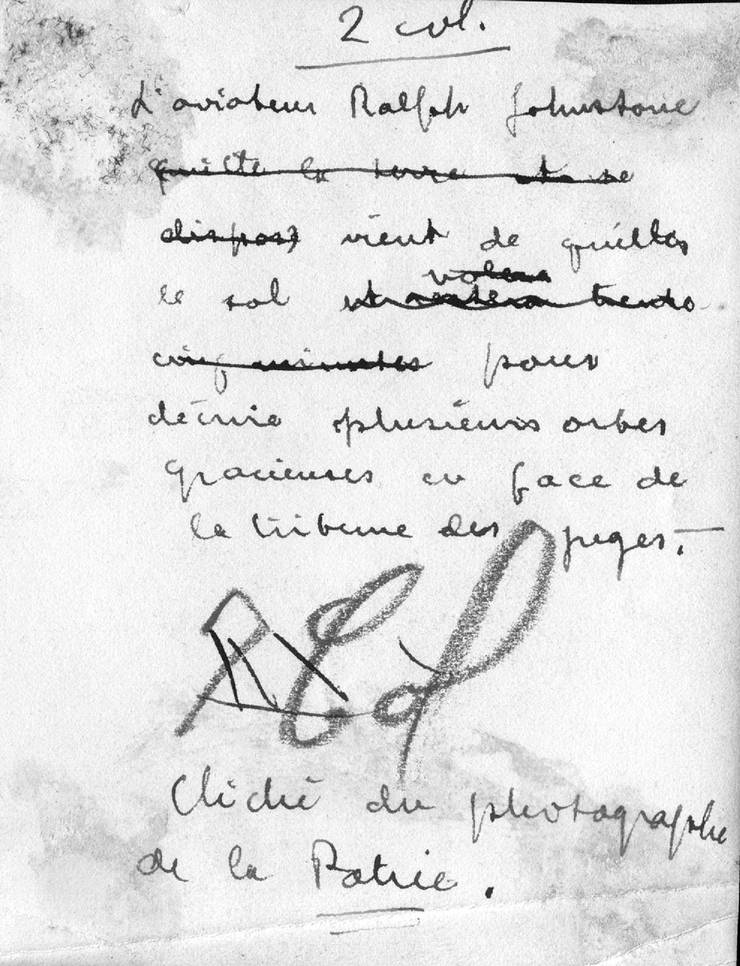 2 col.
L'aviateur Ralph Johnstone
quitte la terre et se
dispose vient de quitter
volera
le sol et restera trente
cinq minutes pour
décrire plusieurs orbes
gracieuses en face de
la tribune des juges.
Cliché du photographe
de la Patrie.